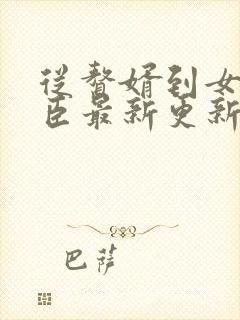 从赘婿到女
臣最新更新
巴萨